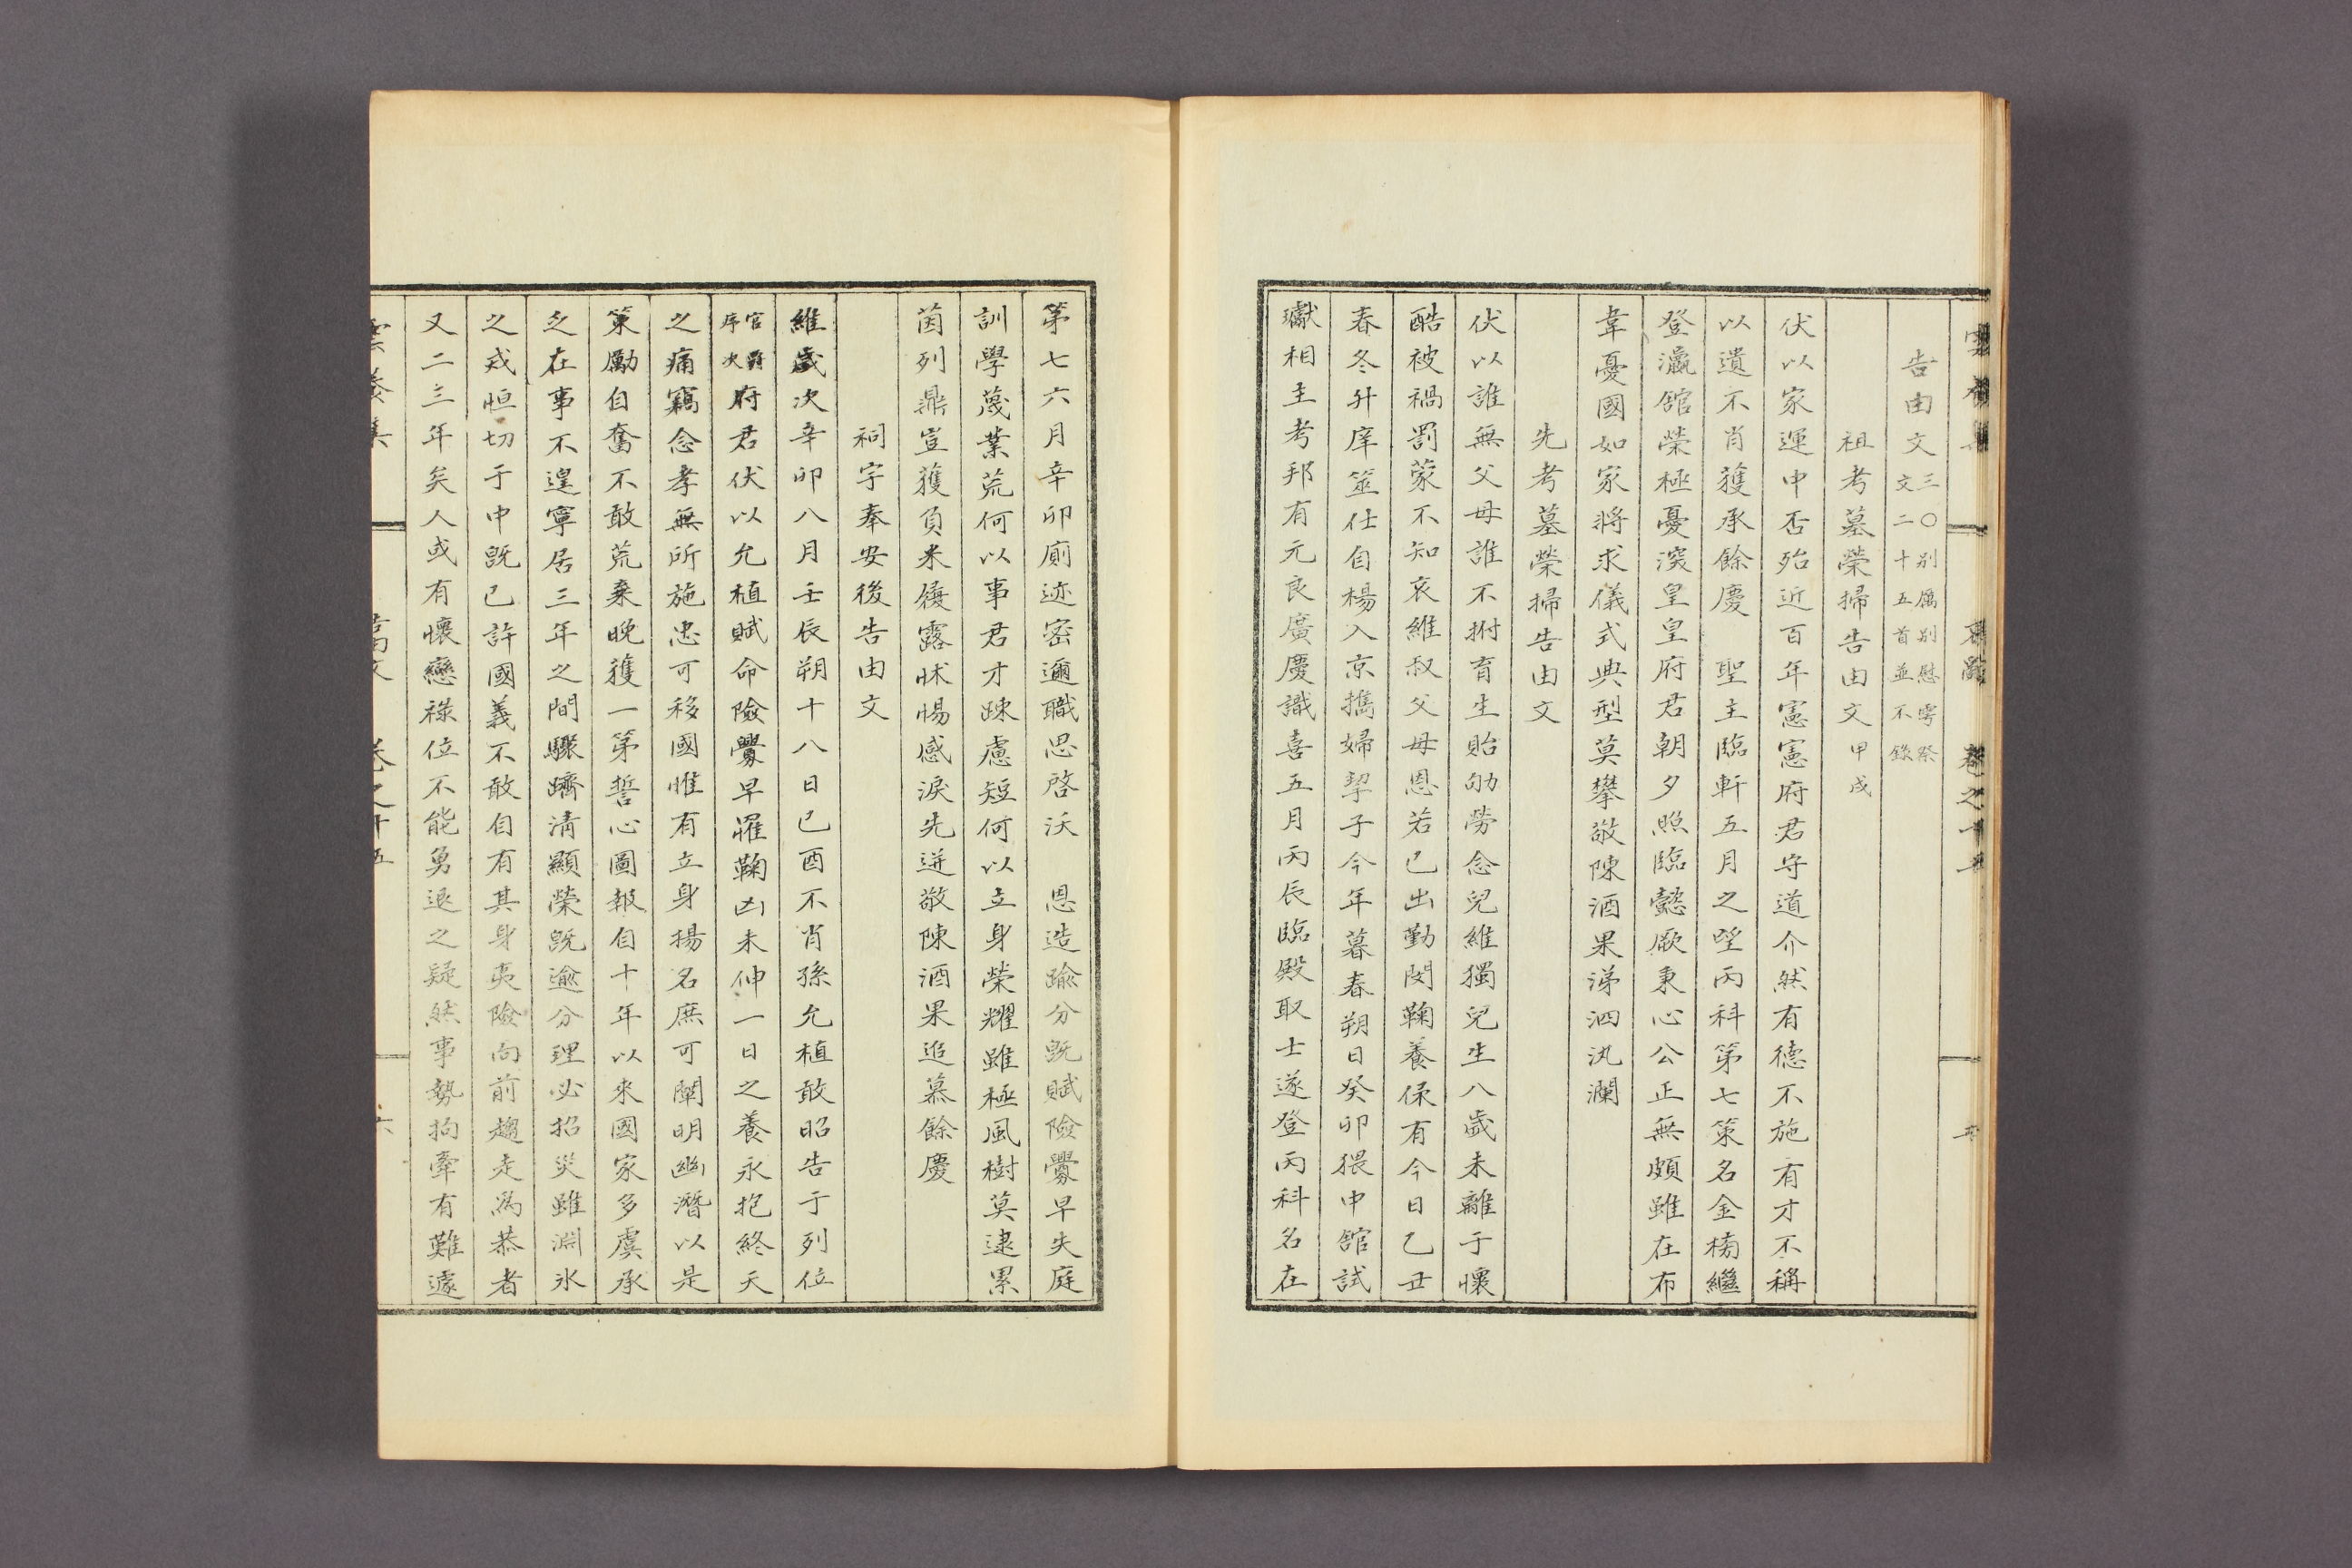 告由文三〇別廟別慰雩祭
文二十五首並不錄
祖考墓榮掃告由文甲戌
伏以家運中否殆近百年憲憲府君守道介然有德不施有才不稱
以遺不肖獲承餘慶 聖主臨軒五月之望丙科第七策名金榜繼
登瀛舘榮極憂深皇皇府君朝夕照臨懿厥秉心公正無頗雖在布
韋憂國如家將求儀式典型莫攀敬陳酒果涕泗汍瀾
先考墓榮掃告由文
伏以誰無父母誰不拊育生貽劬勞念兒維獨兒生八歲未離于懷
酷被禍罰蒙不知哀維叔父母恩若己出勤閔鞠養保有今日乙丑
春冬升庠筮仕自楊入京攜婦挈子今年暮春朔日癸卯猥中舘試
獻相主考邦有元良廣慶識喜五月丙辰臨殿取士遂登丙科名在
第七六月辛卯廁迹密邇職思啓沃 恩造踰分旣賦險釁早失庭
訓學蔑業荒何以事君才踈慮短何以立身榮耀雖極風樹莫逮累
茵列鼎豈獲負米履露怵惕感淚先迸敬陳酒果追慕餘慶
祠宇奉安後告由文
維歲次辛卯八月壬辰朔十八日己酉不肖孫允植敢昭告于列位
官爵序次府君伏以允植賦命險釁早罹鞠凶未伸一日之養永抱終天
之痛竊念孝無所施忠可移國惟有立身揚名庶可闡明幽潛以是
策勵自奮不敢荒棄晚獲一第誓心圖報自十年以來國家多虞承
乏在事不遑寧居三年之間驟躋淸顯榮旣逾分理必招災雖淵氷
之戒恒切于中旣已許國義不敢自有其身夷險向前趨走爲恭者
又二三年矣人或有懷戀祿位不能勇退之疑然事勢拘牽有難遽